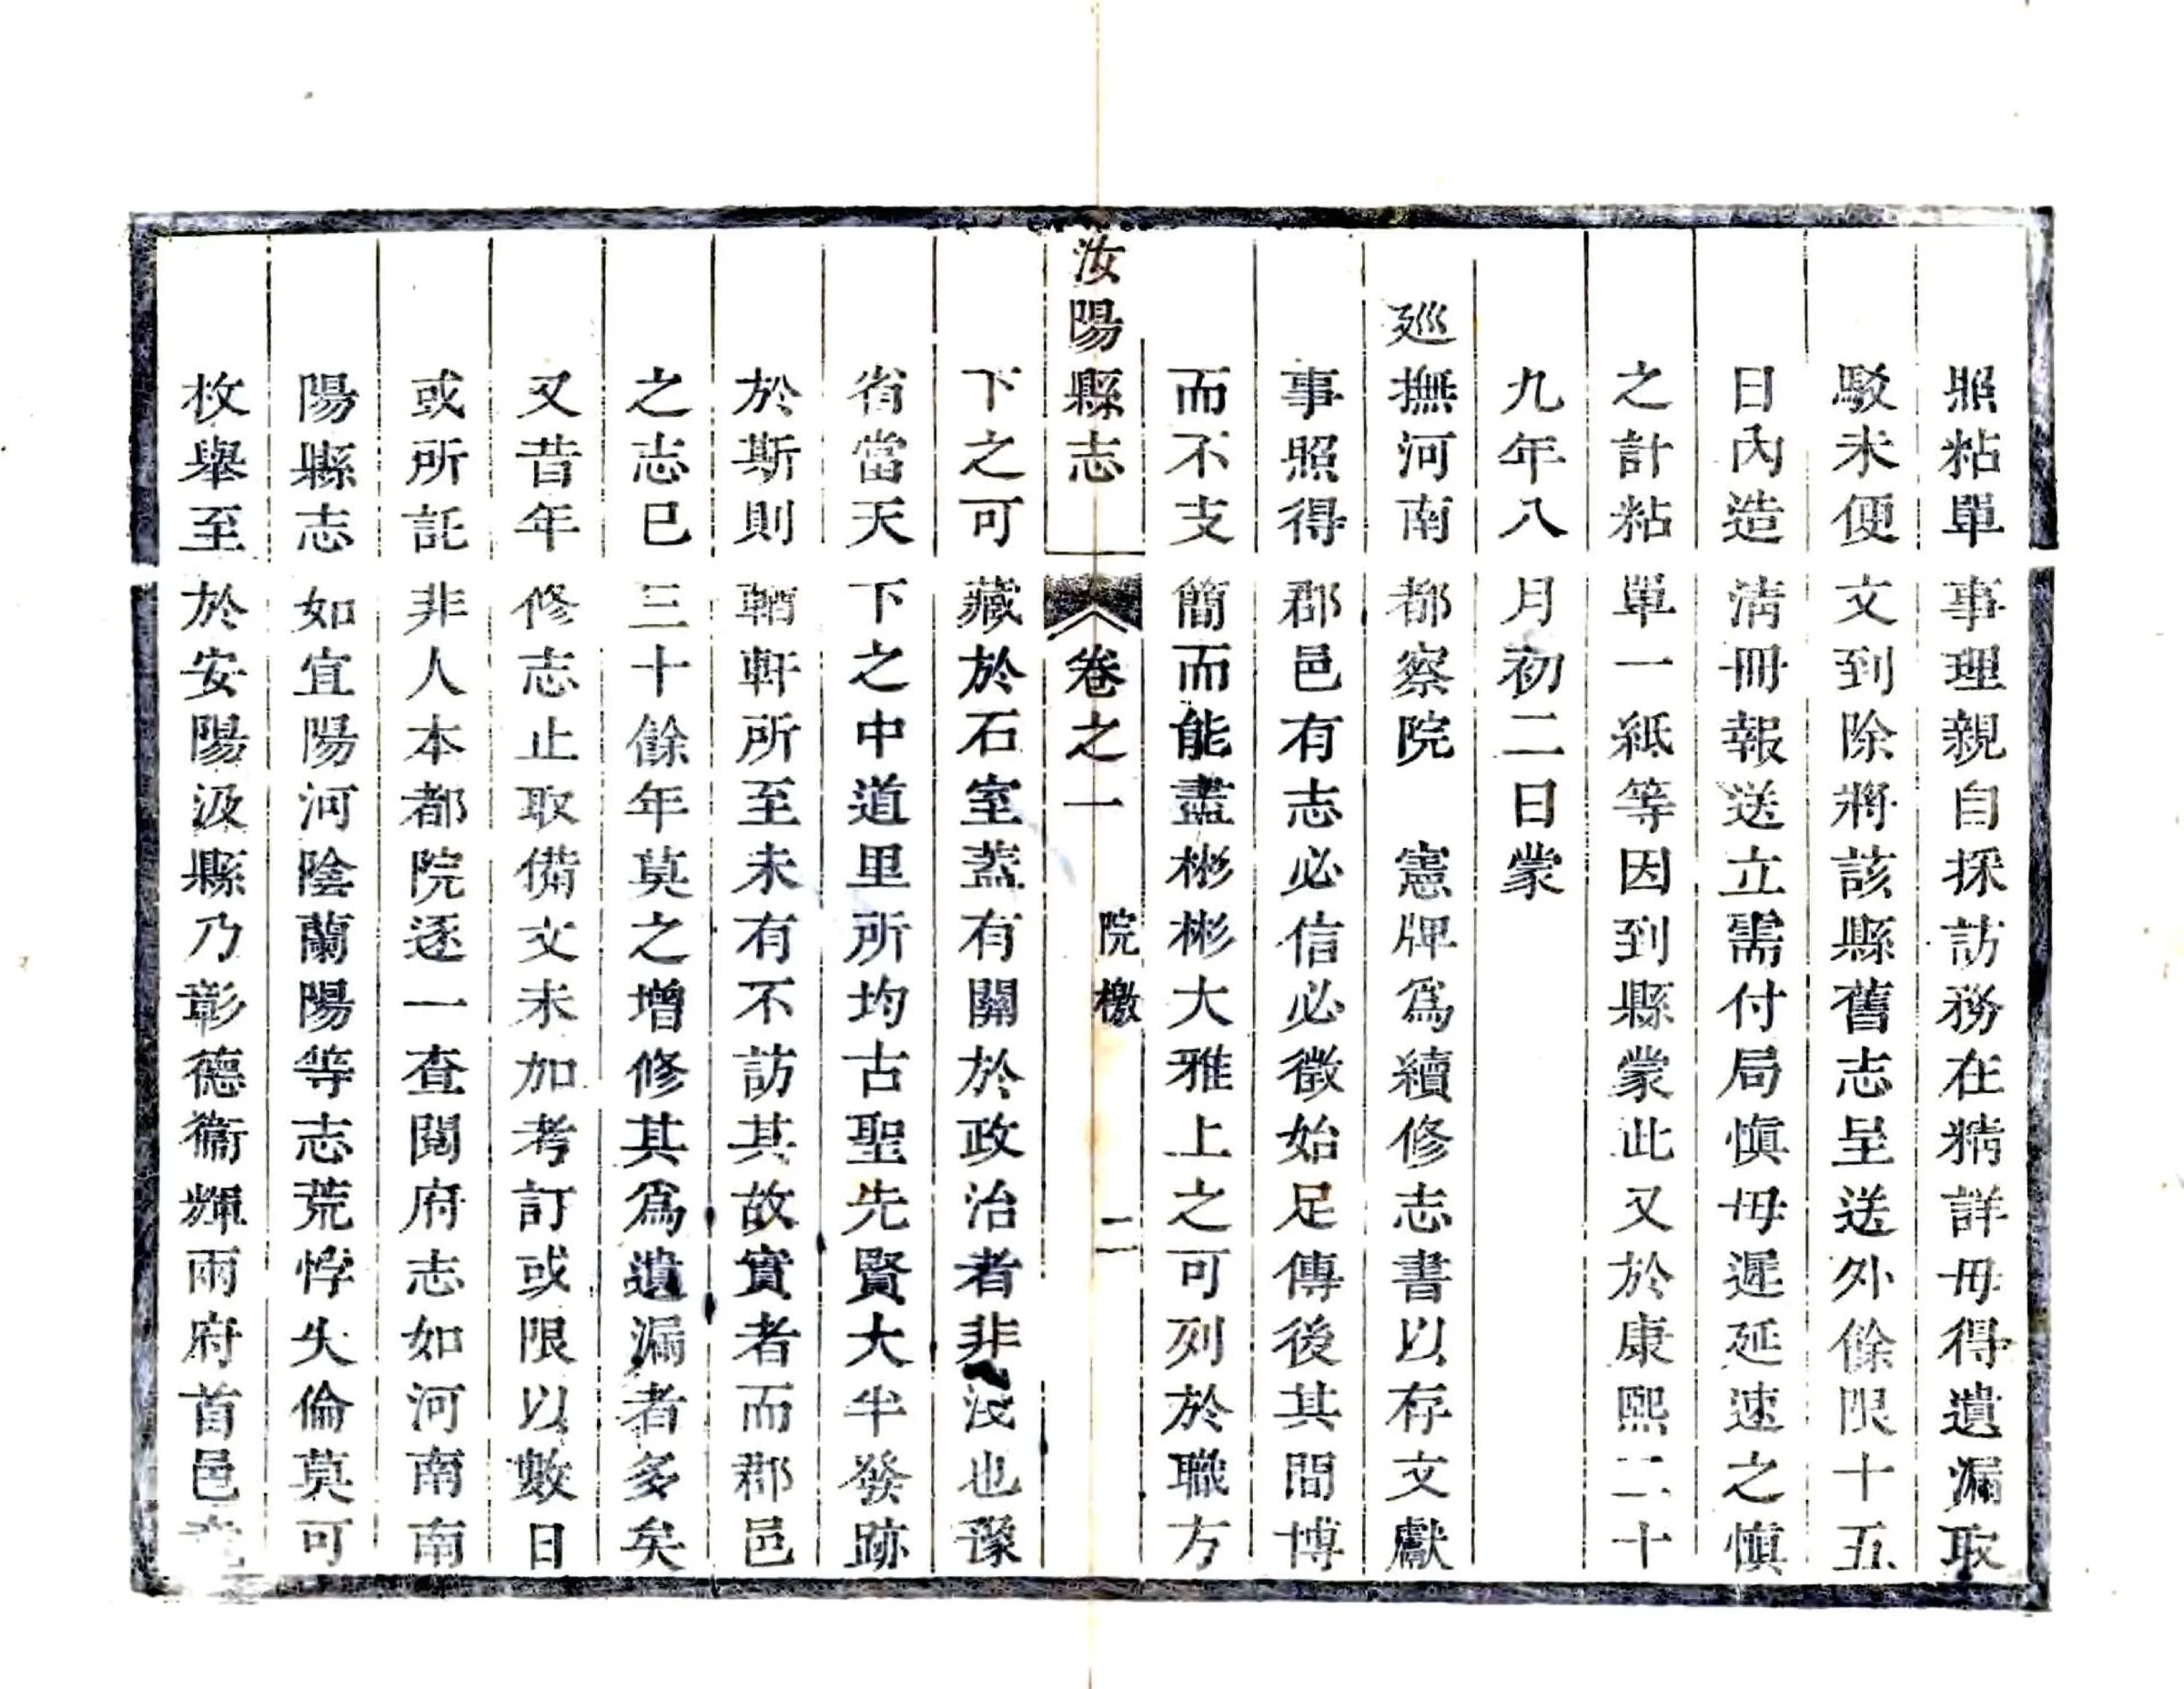 照粘單事理親自採訪務在精詳毋得遺漏取
駁未便文到除將該縣舊志呈送外餘限十五
日內造淸冊報送立需付局愼毋遲延速之愼
之計粘單一紙等因到縣蒙此又於康熙二十
九年八月初二日蒙
廵撫河南都察院　憲牌爲續修志書以存文獻
事照得郡邑有志必信必徵始足傳後其間博
而不支簡而能盡彬彬大雅上之可列於職方
汝陽縣志　卷之一　院檄　二
下之可藏於石室葢有關於政治者非淺也豫
省當天下之中道里所均古聖先賢大半發跡
於斯則輶軒所至未有不訪其故實者而郡邑
之志已三十餘年莫之增修其爲遺漏者多矣
又昔年修志止取備文未加考訂或限以數日
或所託非人本都院逐一查閱府志如河南南
陽縣志如宜陽河陰蘭陽等志荒悖失倫莫可
枚舉至於安陽汲縣乃彰德衞輝兩府首邑